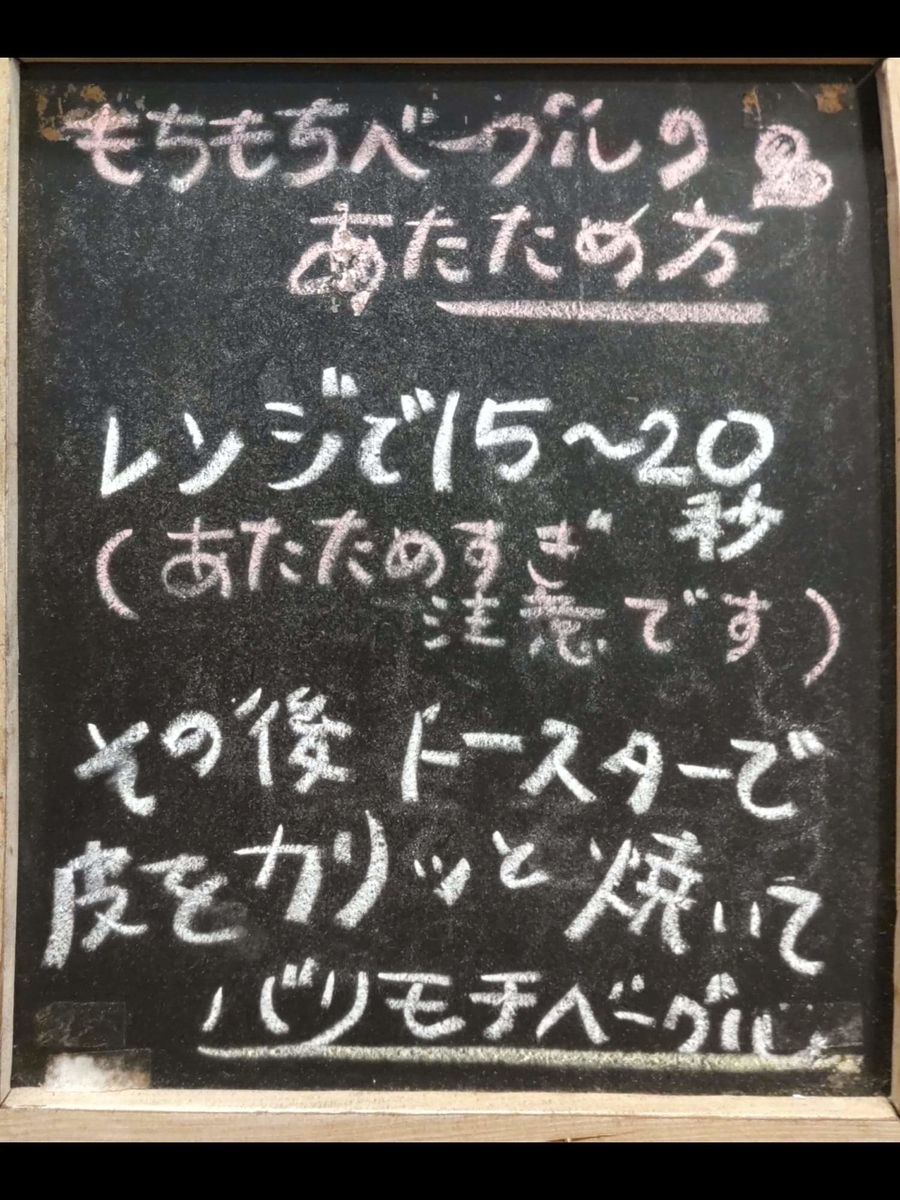 もちもちベーグルの
あたため方
レンジで15~20
秒
(あたためすぎ
注意です)
その後トースターで
皮をカリッと焼いて
バリモチベーグル